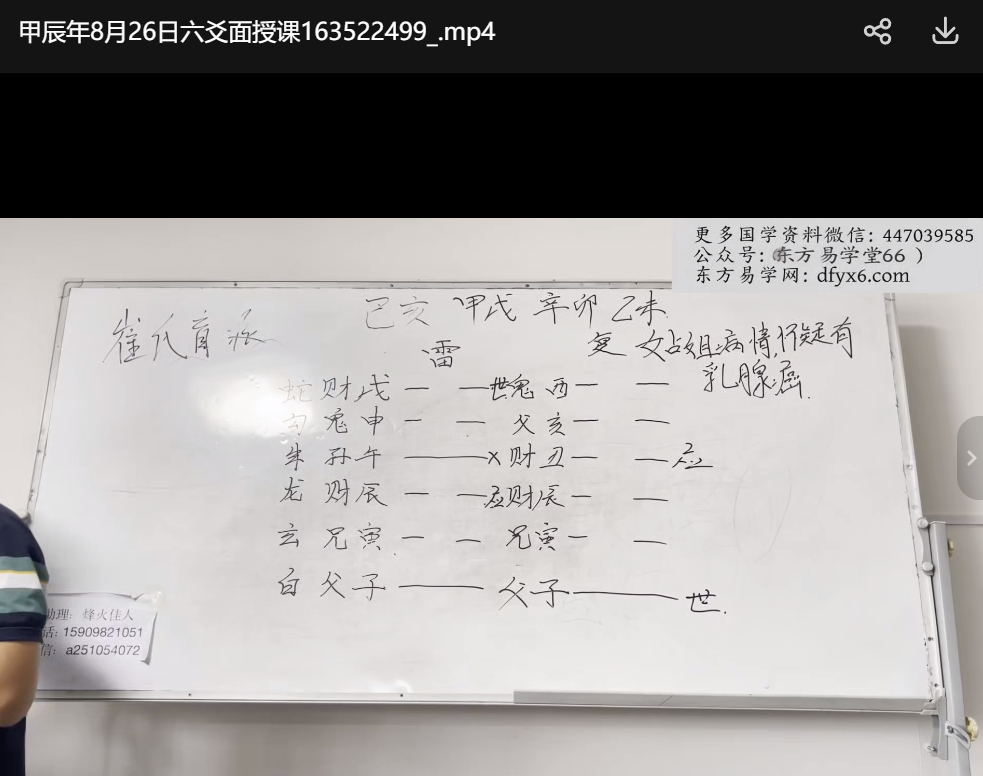 甲辰年8月26日六爻面授课163522499_.mp4
更多国学资料微信：447039585
公众号：东方易学堂66 ）
东方易学网：dfyx6.com
崔氏盲派
己亥 甲戌 辛卯 乙未
雷 复 女占姐病情,怀疑有
乳腺癌.
蛇 财戌 世鬼酉
勾 鬼申 父亥
朱 孙午 X 财丑 应
龙 财辰 应财辰
玄 兄寅 兄寅
白 父子 父子 世
助理: 烽火佳人
话: 15909821051
信: a251054072